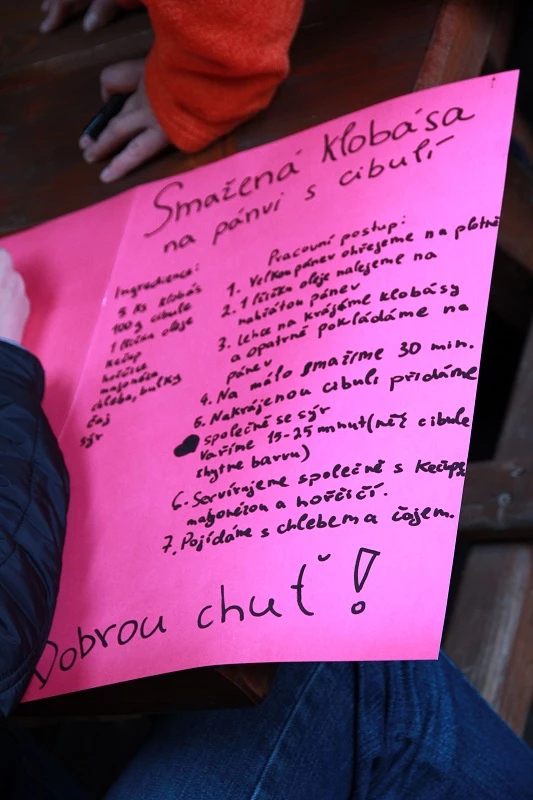 Smažená klobása
na pánvi s cibulí
Ingredience:
5 ks klobás
100g cibule
1 lžička oleje
kečup
hořčice
majonéza
chleba, bulky
čaj
sýr
Pracovní postup:
1. Velkou pánev ohřejeme na plotně
2. 1 lžičku oleje nalejeme na
nahřátou pánev
3. Lehce na krájéme klobásy
a opatrně pokládáme na
pánev
4. Na málo smažíme 30 min.
5. Nakrájenou cibuli přidáme
společně se sýr
Vaříme 15-25 minut (než cibule
chytne barvu)
6. Servírujeme společně s kečup
majonézou a hořčičí.
7. Pojídáme s chlebem a čajem.
Dobrou chuť!